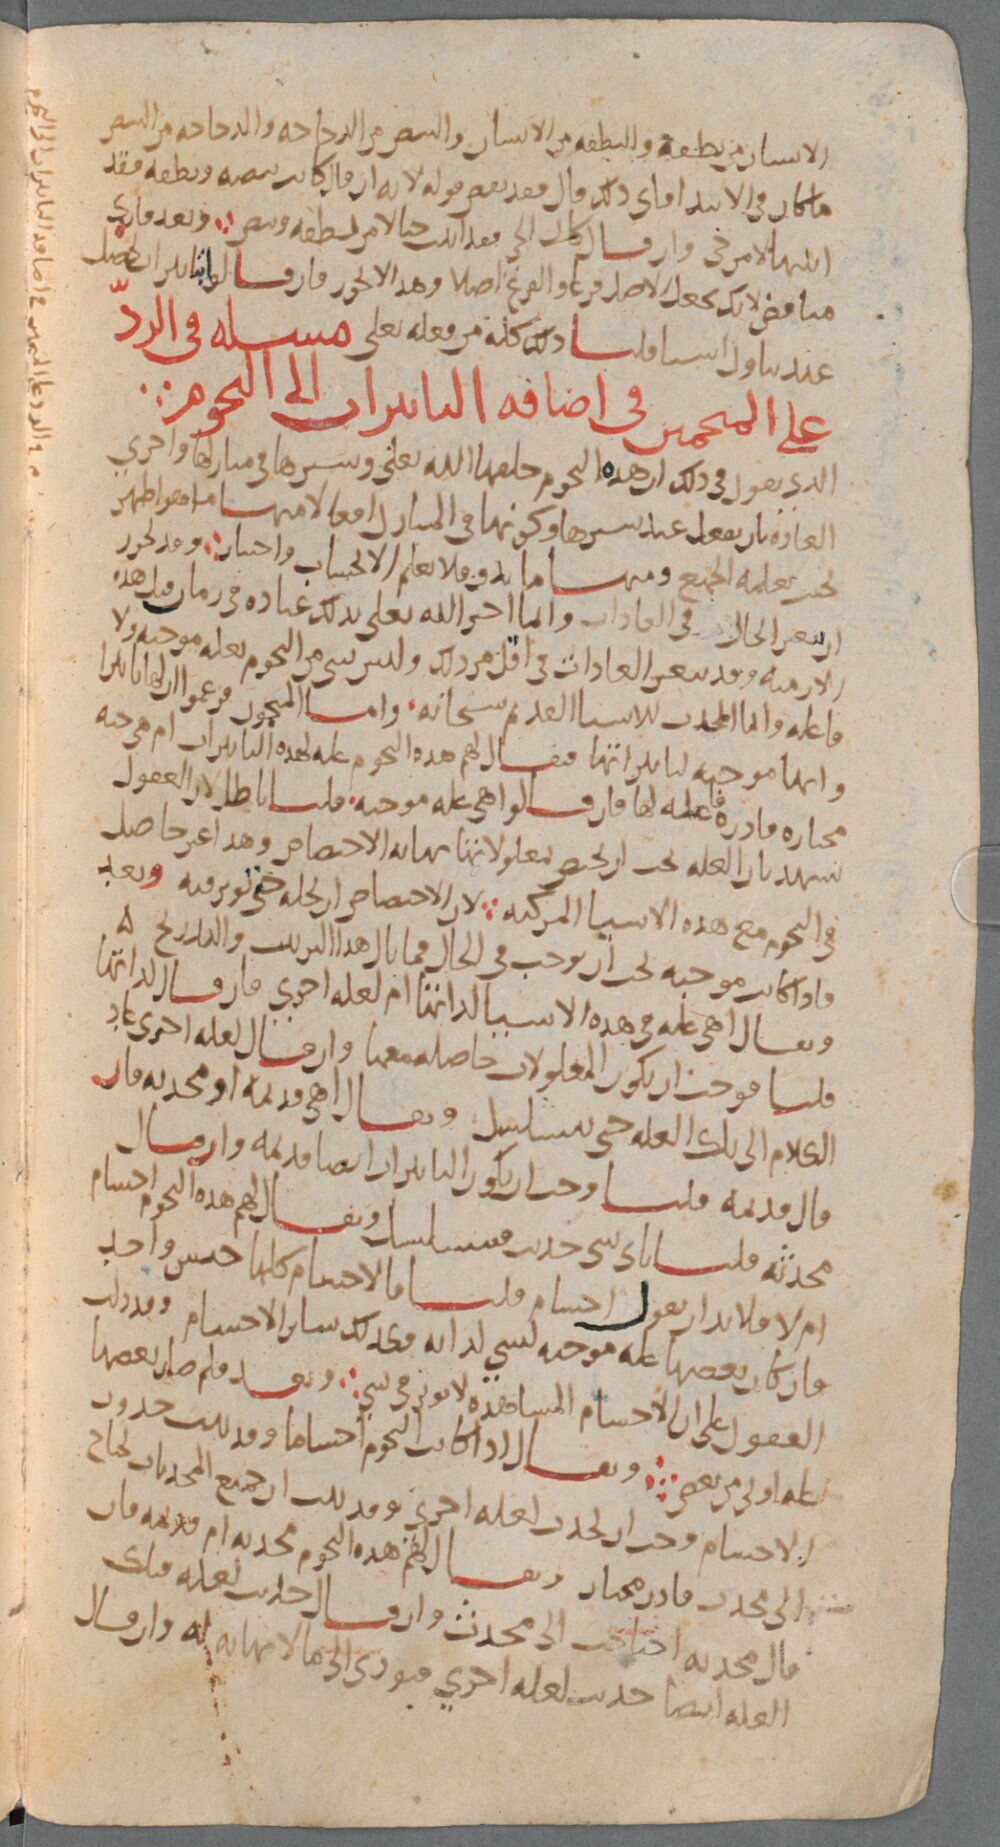 الانسان من نطفة والنطفه من الانسان والبيض من الدجاجه والدجاجه من البيض
ما كان في الابتدا فاي ذلك قال فقد نقض قوله لانه ان قال كانت بيضه ونطفه فقد
انتها الامر في وان قال كان الحي فقد اثبت حيا لا من نطفه وبيض وبعد فان
مناقض لانك تجعل الاصل فرعا والفرع اصلا وهذا لا يجوز فان قالوا التاثيرات تحصل
عند تناول اشيا قلنا ذلك كله من فعله تعلى مسىله في الردّ
على المنجمين في اضافه التاثيرات الى النجوم
الذي يقول في ذلك ان هذه النجوم خلقها الله تعلى وسيرها في منازلها واجرى
العاده بان يفعل عند سيرها وكونها في المنازل افعالا منها ما هو اظهر
بحيث يعلمه الجميع ومنها ما يدق ولا يعلم الا بحساب واختبار وقد يجوز
ان يتغير الحال في العادات وانما اخبر الله تعلى بذلك عباده في زمان قبل هذه
الازمنه وقد يتغير العادات في اقل من ذلك وليس شي من النجوم بعله موجبه ولا
فاعله وانما المحدث للاشيا القديم سبحانه واما المنجمون فزعموا ان لها تاثيرا
وانها موجبه لتاثيراتها فيقال لهم هذه النجوم عله لهذه التاثيرات ام هي حيه
مختاره قادره فاعله لها فان قالوا هي عله موجبه قلنا باطل لان العقول
تشهد بان العله يجب ان تختص بمعلولاتها نهايه الاختصاص وهذا غير حاصل
في النجوم مع هذه الاشيا المركبه لان الاختصاص ان يحله حتى يوثر فيه وبعد
فاذا كانت موجبه يجب ان توجب في الحال فما بال هذا الترتيب والتدريج ۵
ويقال اهي عله في هذه الاشيا لذاتها ام لعله اخرى فان قال لذاتها
قلنا فوجب ان يكون المعلولات حاصله معها وان قال لعله اخرى عاد
الكلام الى تلك العله حتى يتسلسل ويقال اهي قديمه او محدثه فان
قال قديمه قلنا وجب ان يكون التاثيرات ايضا قديمه وان قال
محدثه قلنا باي شي حدثت فيتسلسل ويقال لهم هذه النجوم اجسام
ام لا فلا بد ان يقول اجسام قلنا فالاجسام كلها جنس واحد
فان كان بعضها عله موجبه لشي لذاته فكذلك ساير الاجسام وقد دلت
العقول على ان الاجسام لا توثر في شي وبعد فلم صار بعضها
عله اولى من بعض ويقال اذا كانت النجوم اجساما وقد ثبت حدوث
الاجسام وجب ان تحدث لعله اخرى وقد ثبت ان جميع المحدثات تحتاج
الى محدث قادر مختار ويقال لهم هذه النجوم محدثه ام قديمه فان
قال محدثه احتاجت الى محدث وان قال حدثت لعله فتلك
العله ايضا حدثت لعله اخرى فيودي الى ما لا نهايه له وان قال